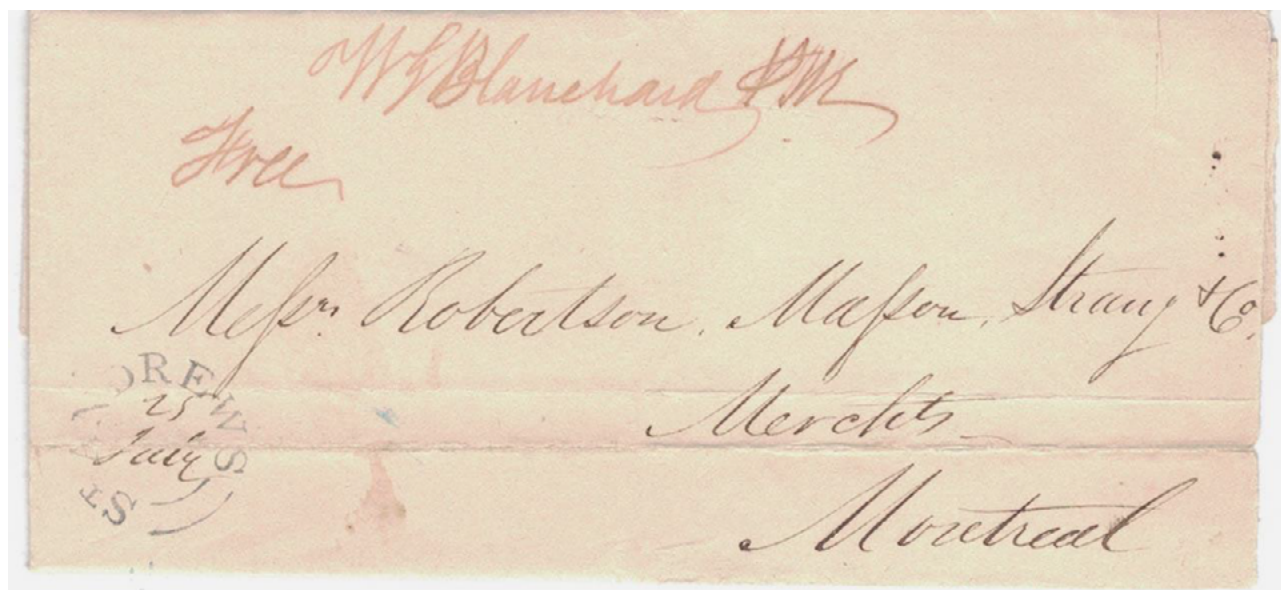 W G Blanchard PM
Free
Messrs Robertson, Masson, Strang & Co.
Merchts
Montreal
ST ANDREWS
25
July